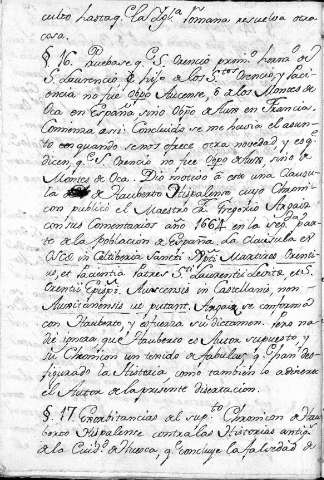 culto hasta q.e la Igl.a Romana resuelva otra
cosa.
§ 16. Pruebase q.e S. Orencio prim.o herm.o de
S. Laurencio é hijo de los S.tos Orencio, y Paci-
encia no fue Obpo Aucense, ó de los Montes de
Oca en España sino Obpo de Aux en Francia.
Comienza asi: Concluida se me havia el asun-
to con quando se nos ofrece otra novedad, y es q.e
dicen, q.e S. Orencio no fue Obpo de Aux sino de
Montes de Oca. Dio motivo á esto una Clausu-
la de Hauberto Hispalense, cuyo Chroni-
con publicó el Maestro Fr. Gregorio Argaiz
con sus Comentarios año 1664 en la seg.da par-
te de la poblacion de España. La clausula es
Oscæ in Celtiberia Sancti Xpti Martires Orenti-
us, et Pacientia Patres S.ti Laurentii Levitæ, et S.
Orentii Episc.i Auscensis in Castellanis, non
Auxitanensis ut putant. Argaiz se conforma
con Hauberto, y esfuerza su dictamen. Pero na-
die ignora que Hauberto es Autor supuesto, y
su Chronicon un texido de fabulas, q.e han des-
figurado la Historia como tambien lo advierte
el Autor de la presente disertacion.
§. 17. Exorbitancias del sup.to Chronicon de Hau-
berto Hispalense contra las Historias antig.s
de la Ciud.d de Huesca, q.e concluye la falsedad de